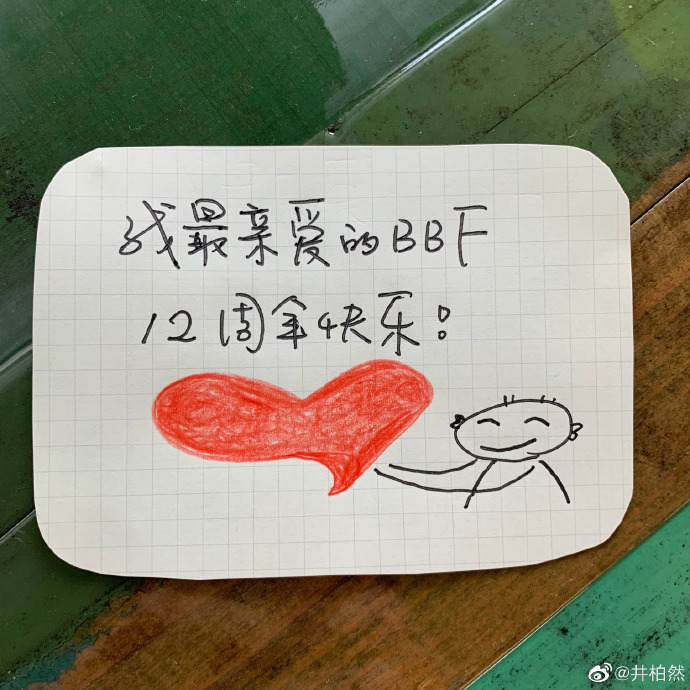 我最亲爱的BBF
12周年快乐!
@井柏然